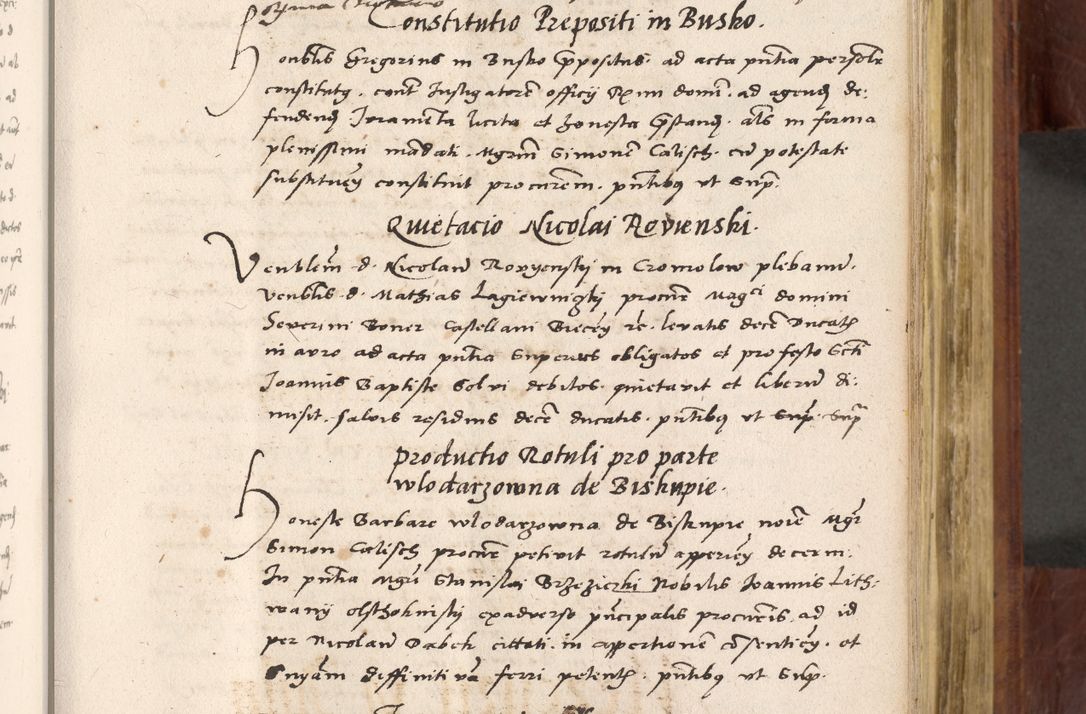 Constitutio Prepositi in Busko.
Honblis Gregorius in Busko Ppositus. ad acta pntia personlr
constitutq. cont Instigatorē officij Rxmi domi. ad agend de:
fendend Iuramēta licita et honesta Pstand. als in forma
plenissimi mādati. Mgrm Simonē Calisch. cū potestate
substituen constituit procurem. pntibq ut Sup.
Quietacio Nicolai Rovienski.
Venblem d. Nicolaū Rovyenskj in Cromolow plebanū.
venblis d. Mathias Lagiewnizkj procure Magci domini
Severini Boner Castellani Biecen re. levatis decē Ducatis
in auro ad acta pntia Superes obligatos et pro festo Scti
Joannis Baptiste Solvi debitos. quietavit et liberū di:
misit. salvis residuis decē ducatis. pntibq ut Sup. Sup
Productio Rotuli pro parte
wlodarzowna de Biskupie.
Honeste Barbare wlodarzowna de Biskupie norē Mgr
Simon Calisch procure petivit rotulū apperien decerni.
In pntia Mgri Stanislai Brzeziczki Nobilis Joannis Lith:
wanij olsthoknisky exadverso pncipalis procuris. ad id
per Nicolaū Dabek cittati. in appertionē cōsentien. et
Snyam diffinitivā ferri petentis. pntibq ut Sup.